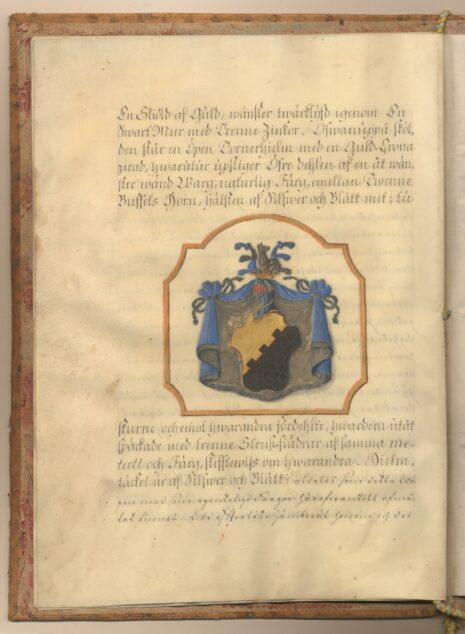 En Skiöld af Guld, wänster twärklyfd igenom En
Swart Mur med Trenne Zinkor. Ofwanuppå Skiöl,
den står en Open Tornerhielm med en Guld Crona
zirad, hwarutur upstiger Öfre dehlen af en åt wän,
ster wänd Warg, naturlig Färg, emellan Twenne
Buffels Horn, hälften af Silfwer och Blått mit itu
skurne och emot hwarandra fördehlte, hwardera utåt
späckade med trenne Struß-fiädrar af samma me-
tell och Färg, skifftewiß om hwarandra. Hielm,
täcket är af Silfwer och Blått, aldeles som detta
med sina egenteliga Färgor här afmå